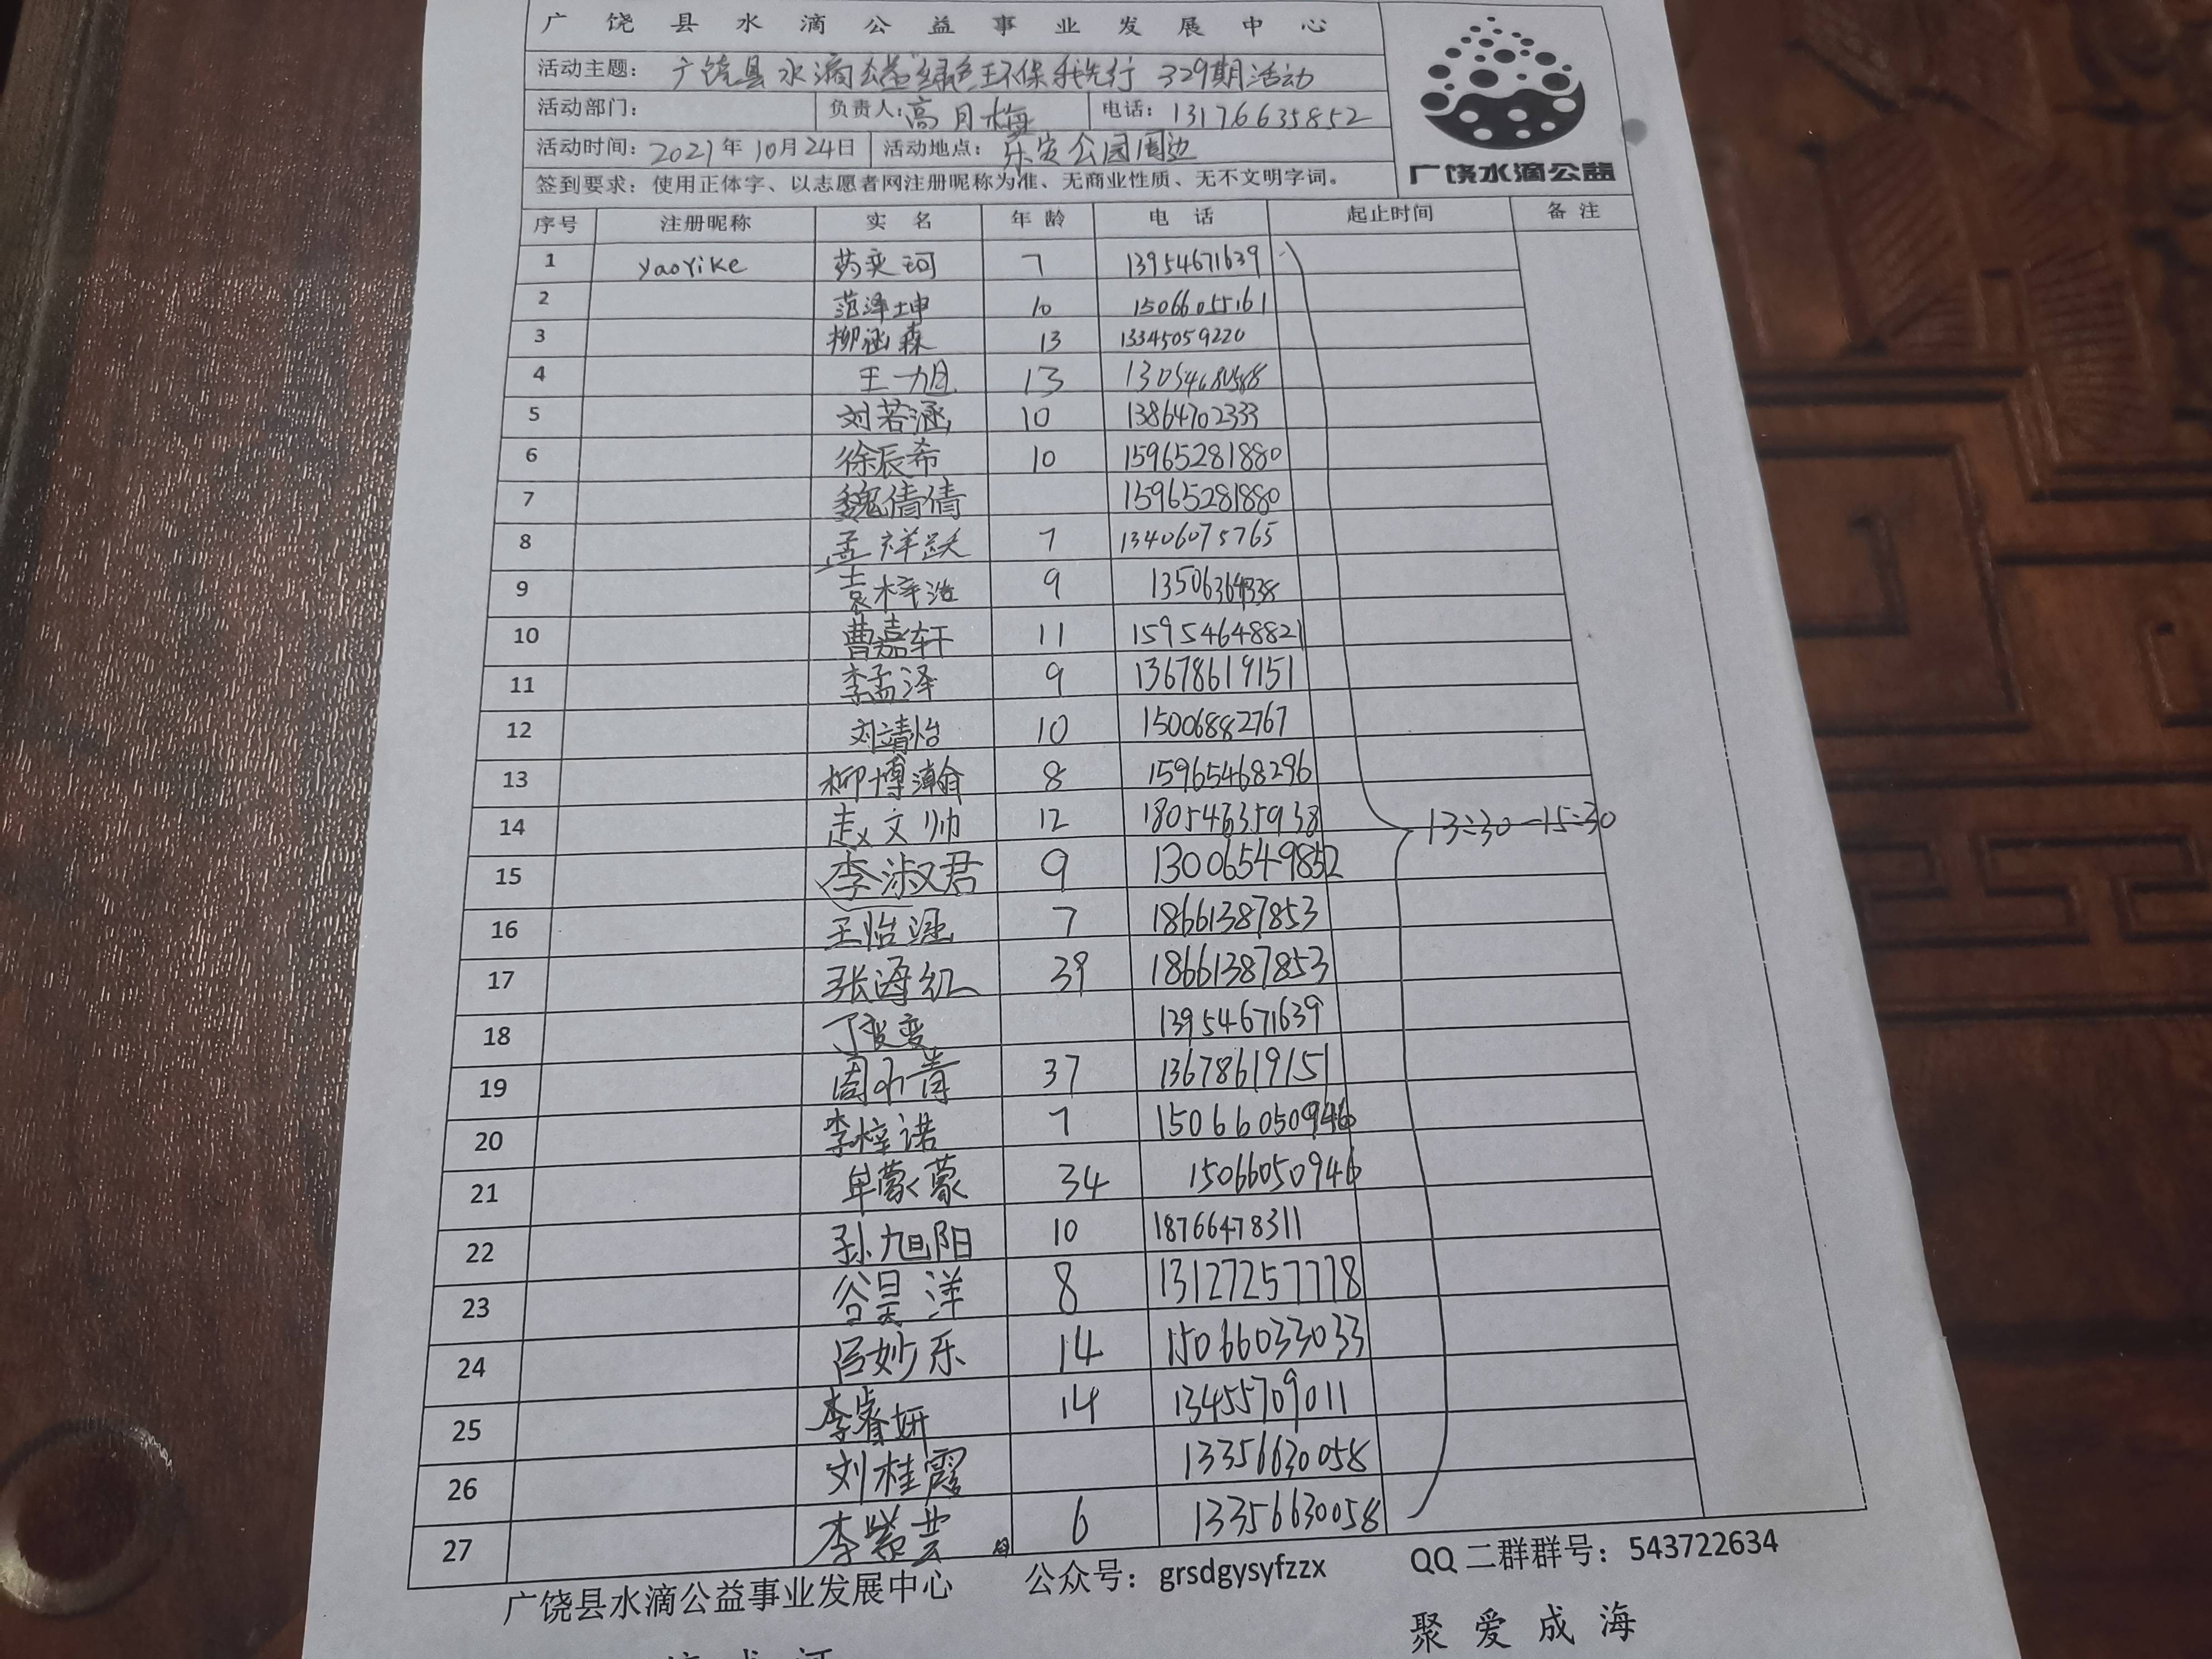 广饶县水滴公益事业发展中心
活动主题：广饶县水滴公益"绿色环保我先行 329期活动
活动部门： 负责人：高月梅 电话：13176635852
活动时间：2021年10月24日 活动地点：乐安公园周边
广饶水滴公益
签到要求：使用正体字、以志愿者网注册昵称为准、无商业性质、无不文明字词。
序号 注册昵称 实名 年龄 电话 起止时间 备注
1 yaoyike 药奕珂 7 13954671639
2 范泽坤 10 15066055161
3 柳涵森 13 13345059220
4 王一旭 13 13054680588
5 刘若涵 10 13864702333
6 徐辰希 10 15965281880
7 魏倩倩 15965281880
8 孟祥跃 7 13406075765
9 袁梓浩 9
10 曹嘉轩 11 15954648821
11 李孟泽 9 13678619151
12 刘靖怡 10 15006882767
13 柳博瀚 8 15965468296
14 赵文帅 12 18054635938
13:30-15:30
15 李淑君 9 13006549852
16 王怡涵 7 18661387853
17 张海红 39 18661387853
18 丁 13954671639
19 周 青 37 13678619151
20 李梓诺 7 15066050946
21 牟蒙蒙 34 15066050946
22 孙旭阳 10 18766478311
23 谷昊洋 8 13127257778
24 吕妙乐 14 15066033033
25 李睿妍 14 13455709011
26 刘桂霞 13356630058
27 李紫芸 6 13356630058
广饶县水滴公益事业发展中心 公众号：grsdgysyfzzx QQ二群群号：543722634
聚爱成海